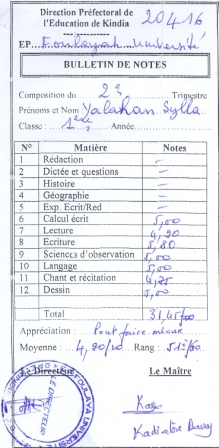 Direction Préfectoral de
l'Education de Kindia
20416
EP.... Foulayah université
BULLETIN DE NOTES
Composition du 2è Trimestre
Prénoms et Nom Yalahan Sylla
Classe : 1ère Année
N° Matière Notes
1 Rédaction –
2 Dictée et questions –
3 Histoire –
4 Géographie –
5 Exp. Ecrit/Red –
6 Calcul écrit 5,00
7 Lecture 4,90
8 Ecriture 5,80
9 Sciences d'observation 5,00
10 Langage 5,00
11 Chant et récitation 4,75
12 Dessin 5,00
Total 31,45
Appréciation : Peut faire mieux
Moyenne : 4,90/10 Rang : 51è/
Le Directeur Le Maître
LE DIRECTEUR
Kadiatou